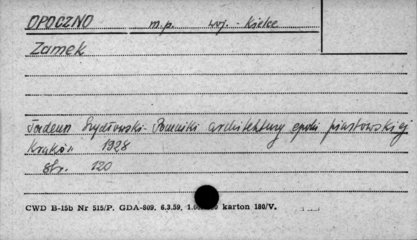 OPOCZNO m.p. woj. - Kielce
Zamek
Tadeusz Szydłowski - Pomniki architektury epoki piastowskiej
Kraków 1928
Str. 120
CWD B-15b Nr 515/P. GDA-809. 6.3.59. karton 180/V.